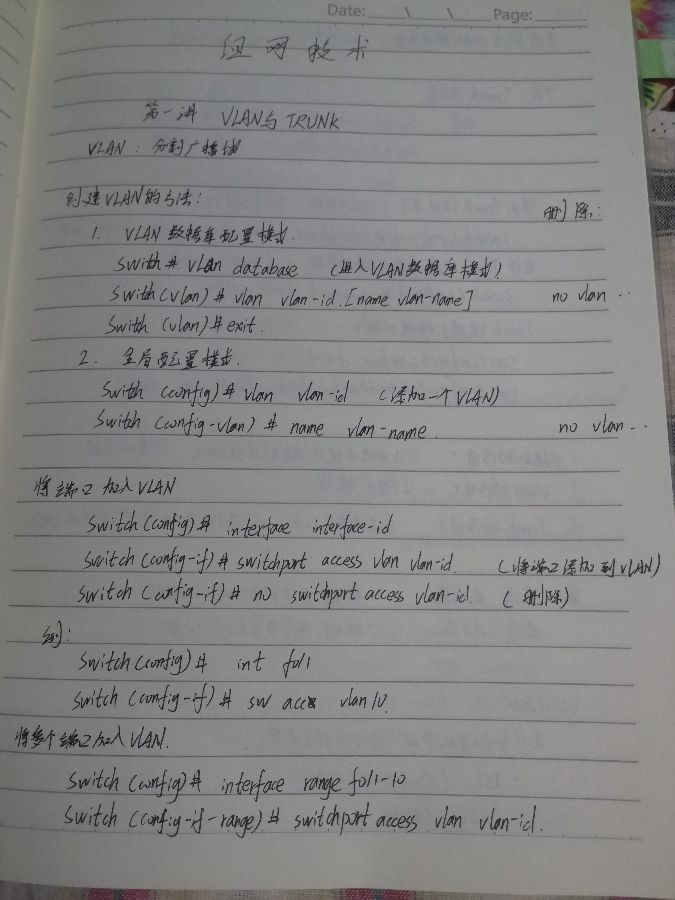 Date: \ \ Page:
组网技术
第一讲 VLAN与TRUNK
VLAN：分割广播域
创建VLAN的方法：
删除：
1. VLAN数据库配置模式.
Swith# vlan database （进入VLAN数据库模式）
Swith(vlan)# vlan vlan-id.[name vlan-name] no vlan ..
Swith (vlan)#exit.
2. 全局配置模式.
Swith (config)# vlan vlan-id （添加一个VLAN）
Swith (config-vlan) # name vlan-name. no vlan ..
将端口加入VLAN
Switch(config)# interface interface-id
Switch(config-if)# switchport access vlan vlan-id. （将端口添加到VLAN）
Switch (config-if)# no switchport access vlan-id. （删除）
例：
Switch(config)# int f0/1
Switch (config-if)# sw acc vlan 10.
将多个端口加入VLAN.
Switch (config)# interface range f0/1-10
Switch (config-if-range)# switchport access vlan vlan-id.